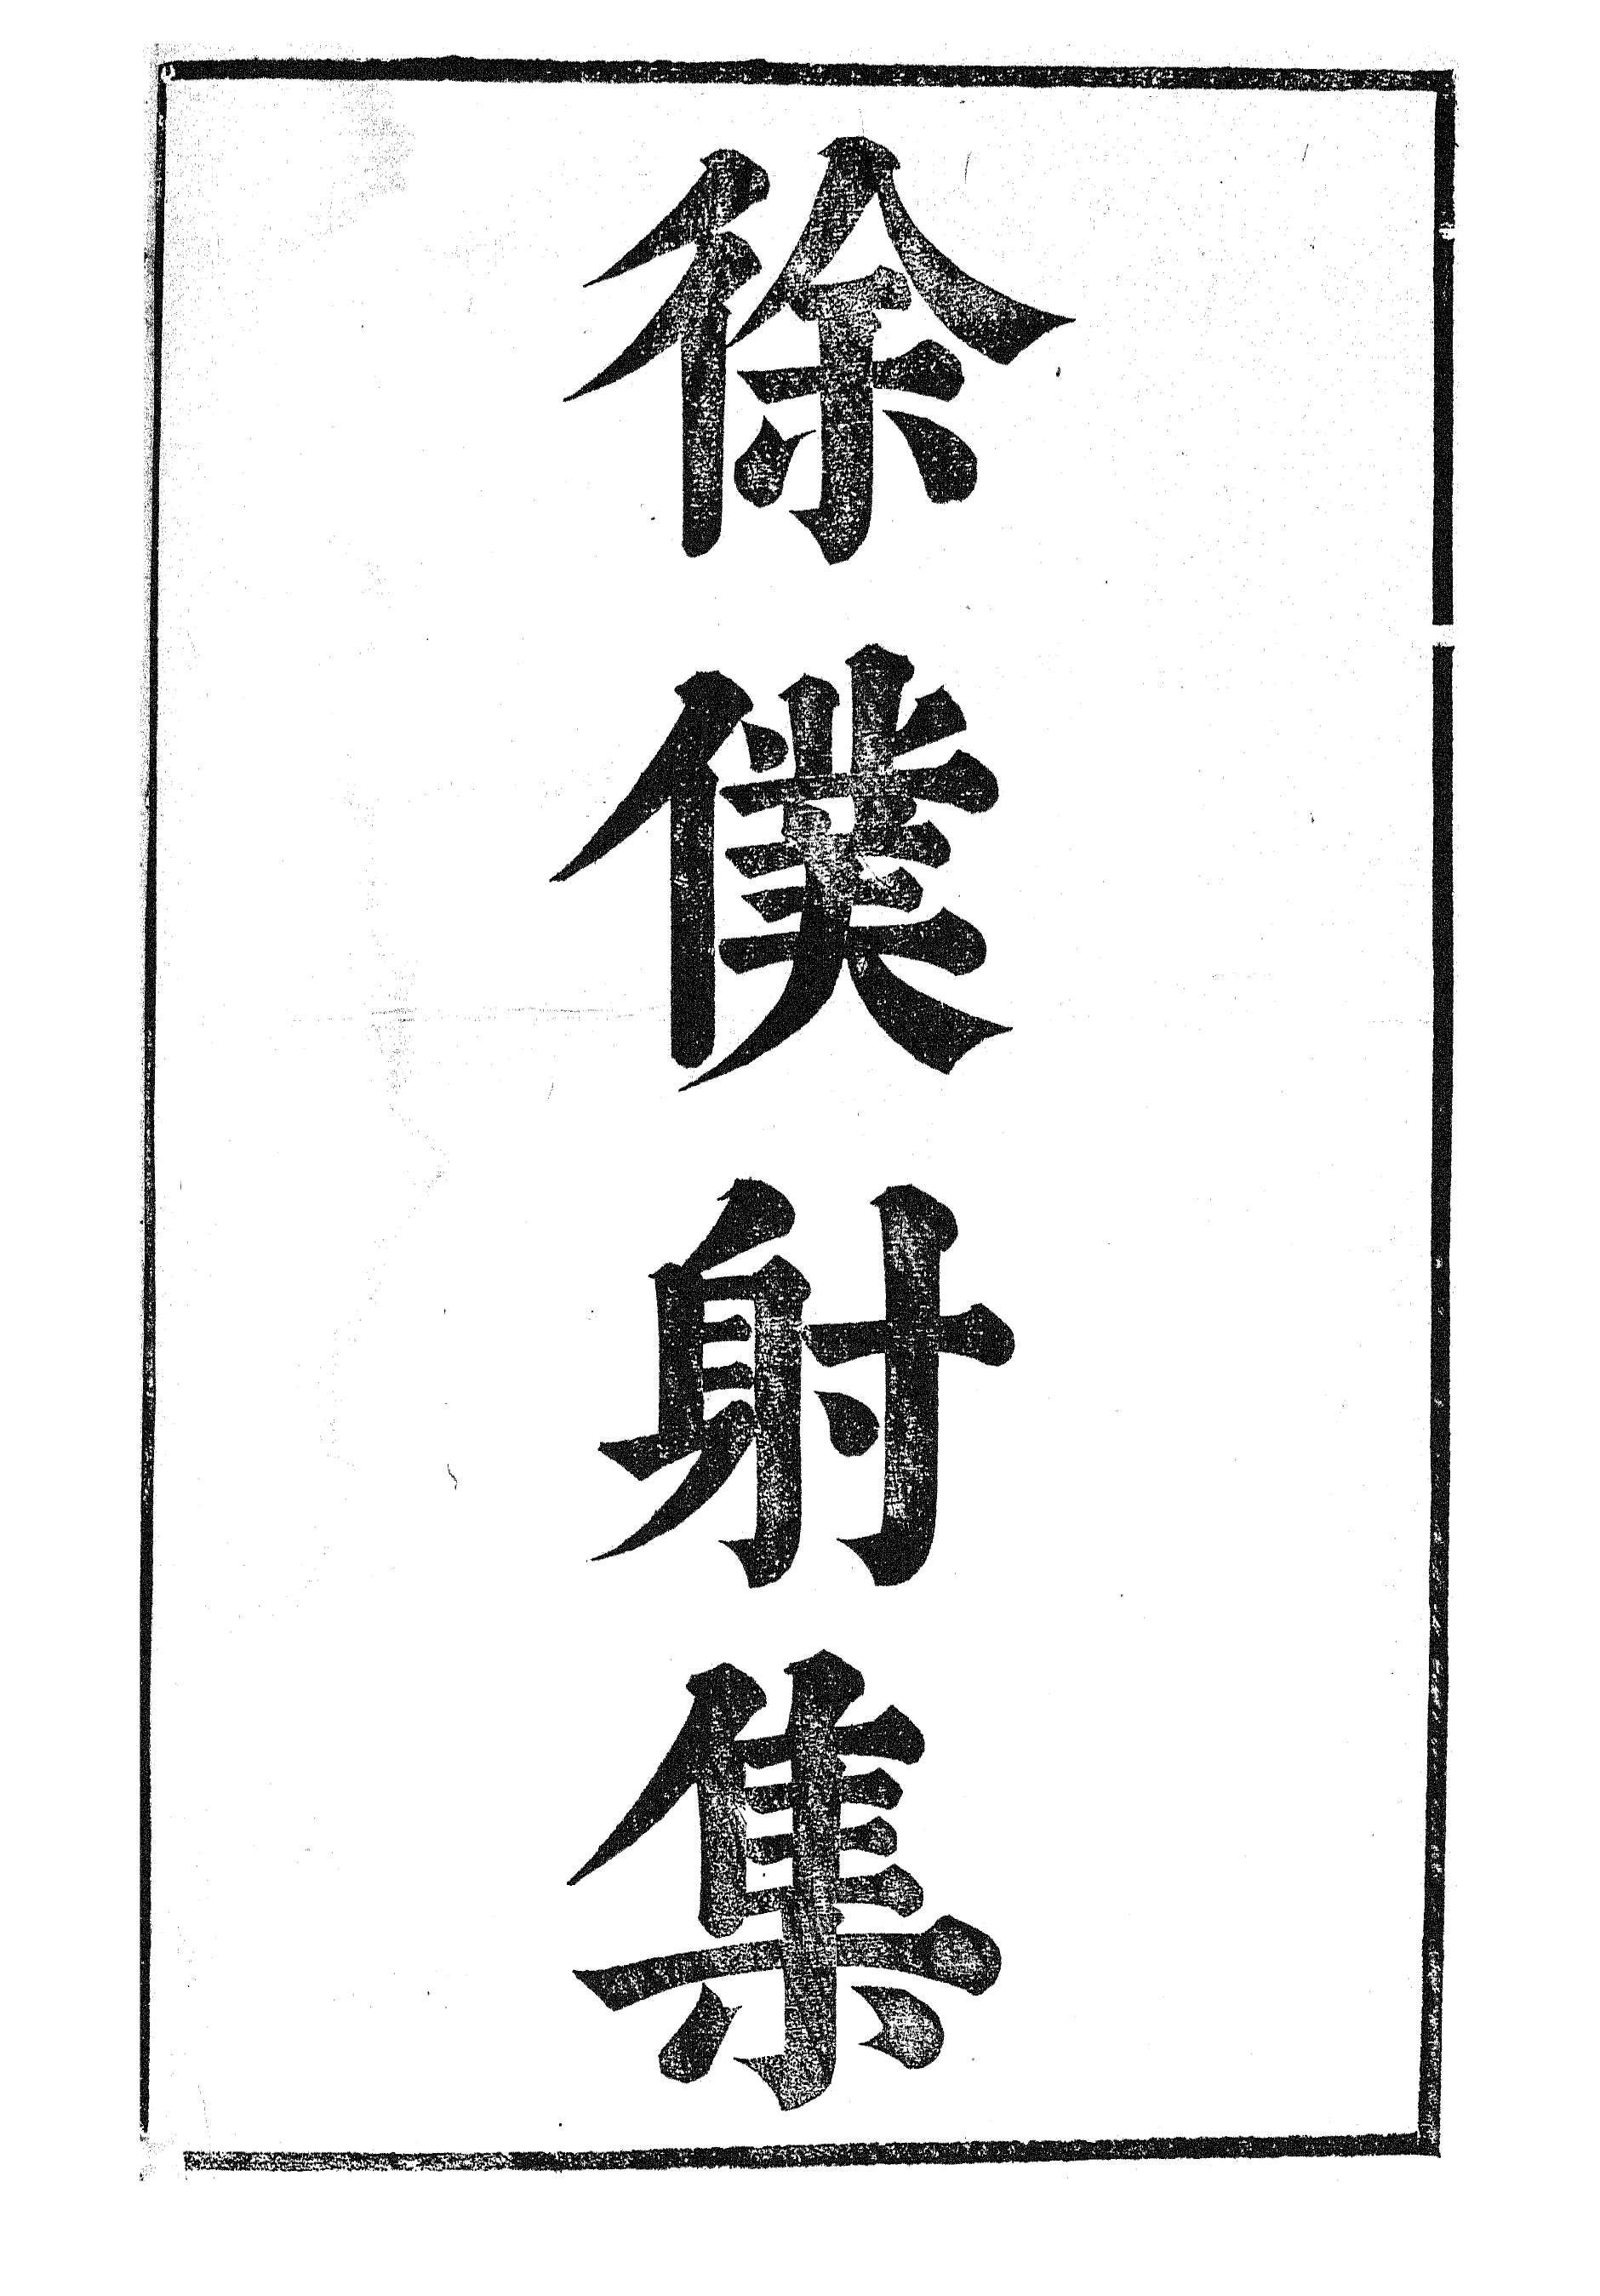 徐僕射集